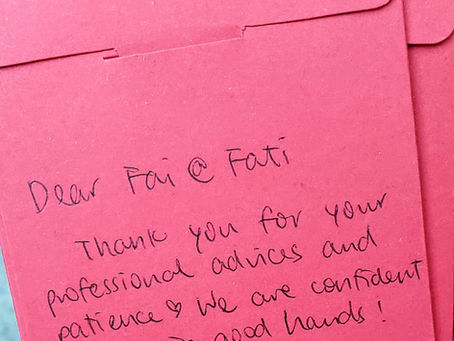 Dear Fai @ Fati
Thank you for your
professional advices and
patience ♡ We are confident
good hands!